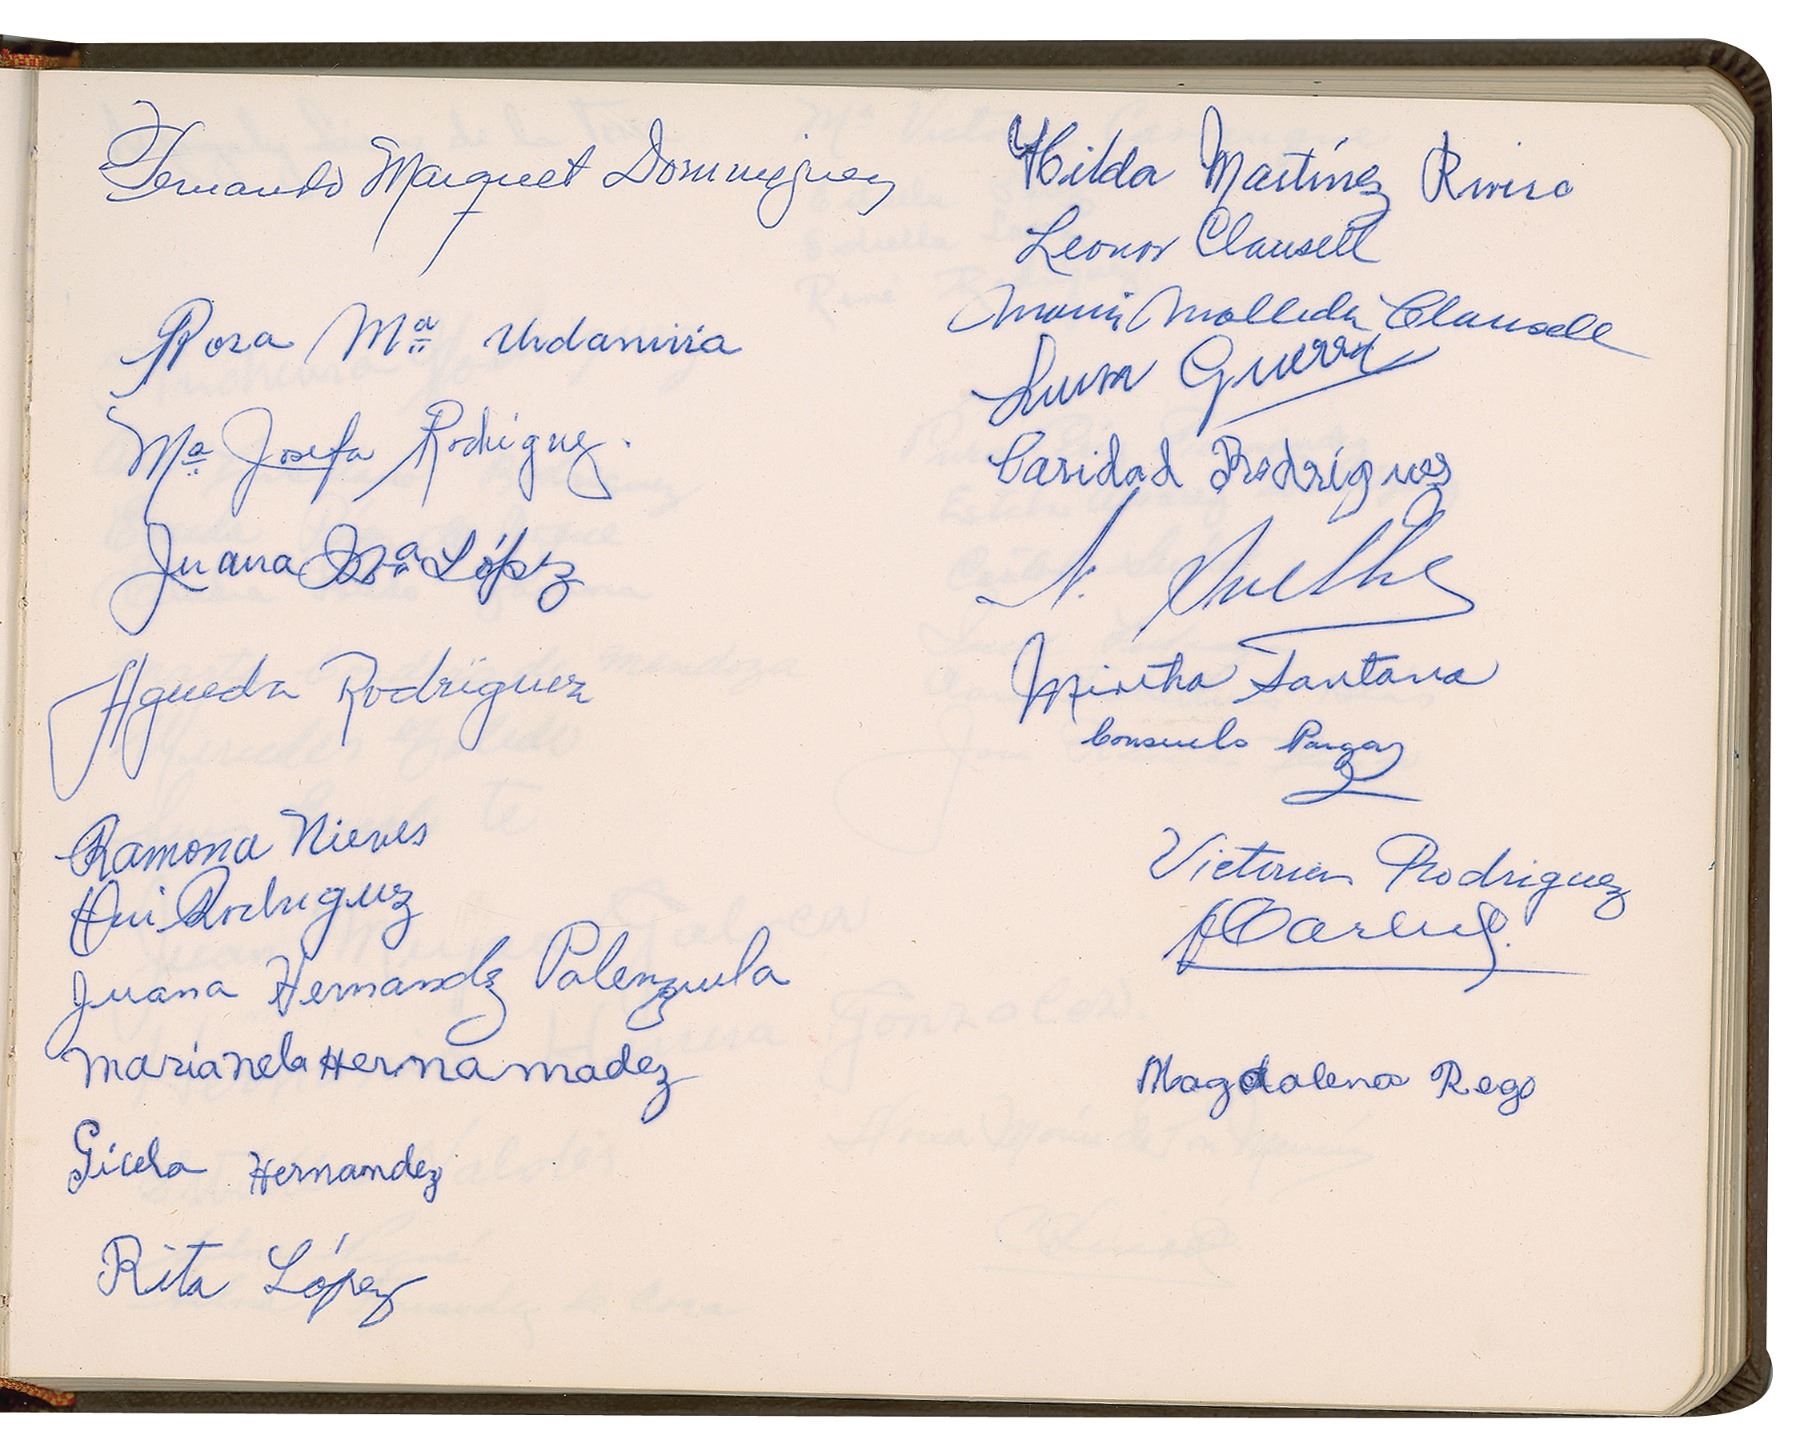 Fernando Marquet Dominguez
Rosa Mª Urdanivia
Mª Josefa Rodriguez.
Juana Mª López
Agueda Rodríguez
Ramona Nieves
Rodriguez
Juana Hernandez Palenzuela
Marianela Hernamadez
Gicela Hernandez
Rita López
Hilda Martínez Rivero
Leonor Clausell
Maria Molleda Clausell
Guerra
Caridad Rodríguez
Mirtha Santana
Consuelo
Victoria Rodriguez
Magdalena Rego